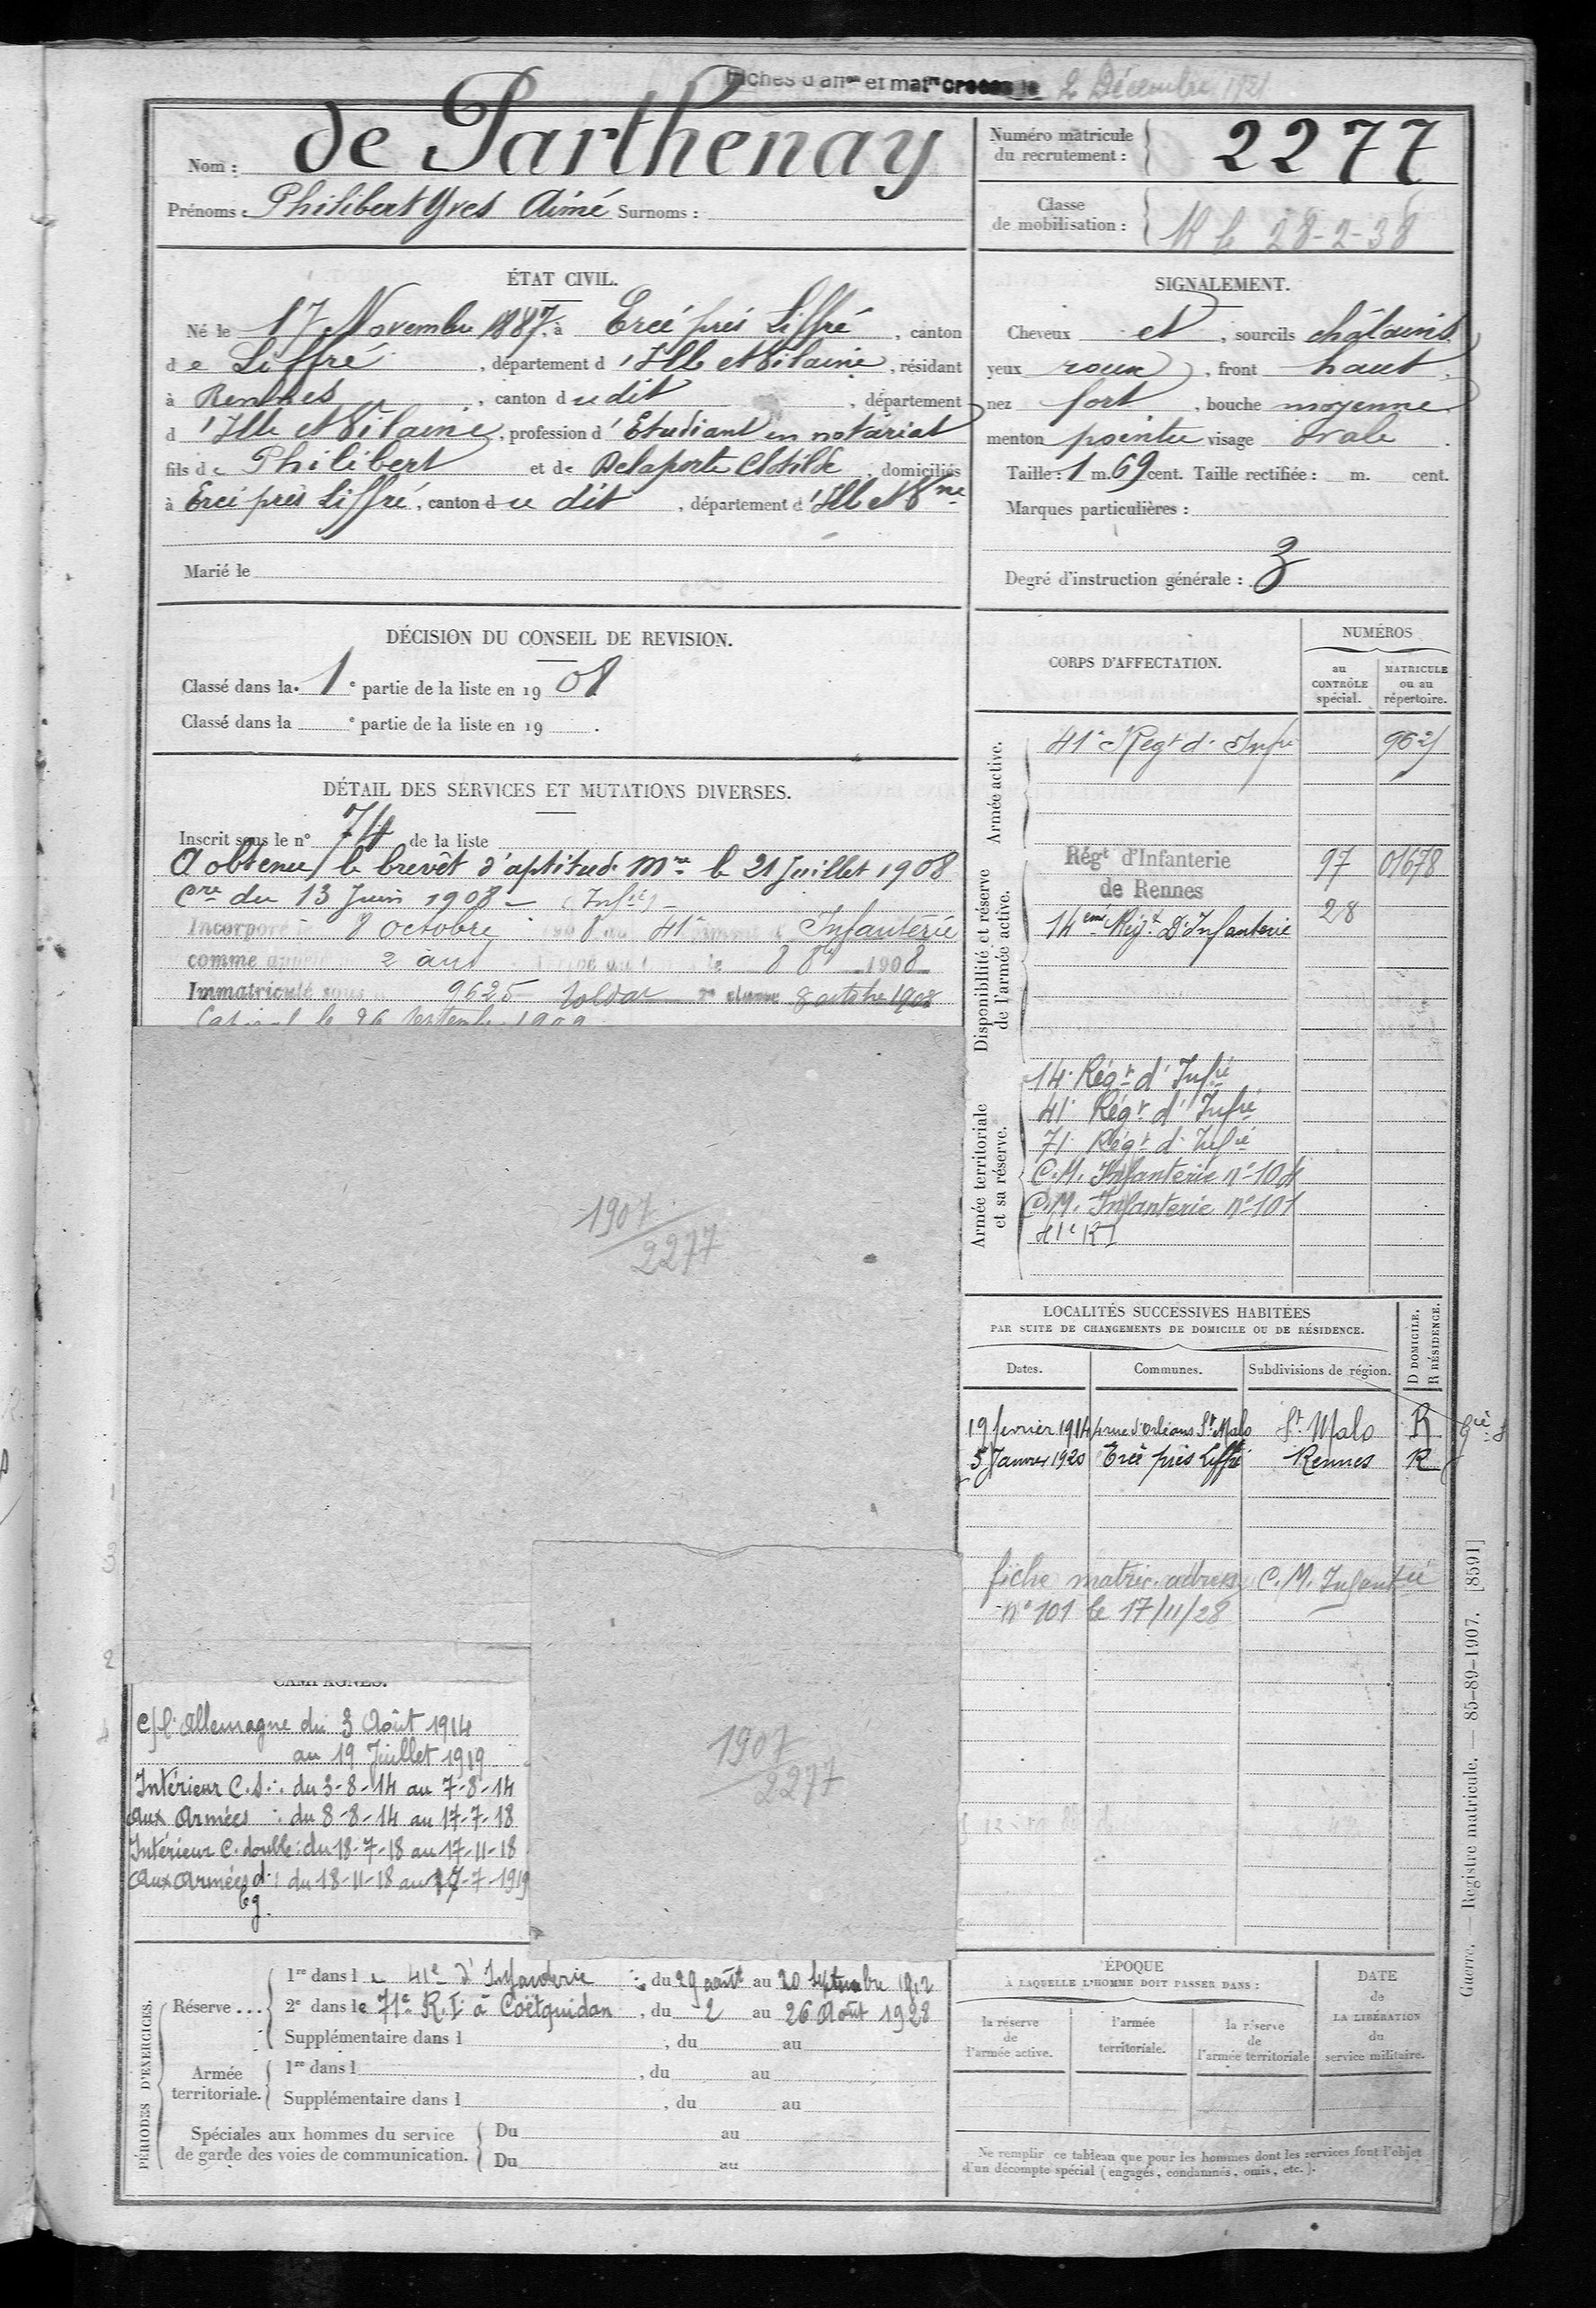 Fiches d'aff et mat creées le 2 Décembre 1921
Nom : de Parthenay
Prénoms : Philibert Yves Aimé Surnoms :
Numéro matricule du recrutement : 2277
Classe de mobilisation : 28-2-38
ÉTAT CIVIL.
Né le 17 Novembre 1887, à Ercé près Liffré, canton
de Liffré, département d'Ille et Vilaine, résidant
à Rennes, canton dudit, département
d'Ille et Vilaine, profession d'Etudiant en notariat
fils de Philibert et de Delaporte Clotilde, domiciliés
à Ercé près Liffré, canton du dit, département d'Ille et Vne
Marié le
SIGNALEMENT.
Cheveux et, sourcils châtains
yeux roux, front haut,
nez fort, bouche moyenne
menton pointu visage ovale.
Taille : 1 m. 69 cent. Taille rectifiée : m. cent.
Marques particulières :
Degré d'instruction générale : 3
DÉCISION DU CONSEIL DE REVISION.
Classé dans la 1e partie de la liste en 1908
Classé dans la e partie de la liste en 19 .
DÉTAIL DES SERVICES ET MUTATIONS DIVERSES.
Inscrit sous le n° 74 de la liste
A obtenu le brevêt d'aptitude Mre le 21 Juillet 1908
Cre du 13 Juin 1908 - (Infie) -
Incorporé le 8 octobre 1908 au 41e Infanterie
comme appelé 2 ans le 8 8bre 1908
Immatriculé sous 9625 soldat 2e classe 8 octobre 1908
Caporal le 26 septembre 1909
1907
2277
CORPS D'AFFECTATION.
NUMÉROS
au CONTRÔLE spécial.
MATRICULE ou au répertoire.
Armée active.
41e Regt d'Infie 9625
Disponibilité et réserve de l'armée active.
Régt d'Infanterie 97 01678
de Rennes 28
14eme Régt D'Infanterie
Armée territoriale et sa réserve.
14e Régt d'Infie
41e Régt d'Infie
71e Régt d'Infie
C.M. Infanterie n° 104
C.M. Infanterie n° 101
41e RI
LOCALITÉS SUCCESSIVES HABITÉES
PAR SUITE DE CHANGEMENTS DE DOMICILE OU DE RÉSIDENCE.
Dates. Communes. Subdivisions de région. D DOMICILE. R RÉSIDENCE.
19 fevrier 1914 4 rue d'Orléans St Malo St Malo R
5 Janvier 1920 Ercé près Liffré Rennes R
fiche matric. adres C.M. Infantie
n° 101 le 17/11/28
CAMPAGNES.
C/ l'Allemagne du 3 Août 1914
au 19 Juillet 1919
Intérieur C.S. : du 3-8-14 au 7-8-14
Aux Armées : du 8-8-14 au 17-7-18
Intérieur C. double : du 18-7-18 au 17-11-18
Aux Armées d : du 18-11-18 au 17-7-1919
bg.
1907
2277
PÉRIODES D'EXERCICES.
Réserve ...
1re dans le 41e d'Infanterie, du 29 août au 20 Septembre 1912
2e dans le 71e R.I. à Coëtquidan, du 2 au 26 Août 1928
Supplémentaire dans l , du au
Armée territoriale.
1re dans l , du au
Supplémentaire dans l , du au
Spéciales aux hommes du service de garde des voies de communication.
Du au
Du au
ÉPOQUE
À LAQUELLE L'HOMME DOIT PASSER DANS :
la réserve de l'armée active.
l'armée territoriale.
la réserve de l'armée territoriale
DATE de LA LIBÉRATION du service militaire.
Ne remplir ce tableau que pour les hommes dont les services font l'objet
d'un décompte spécial (engagés, condamnés, omis, etc.).
Guerre. — Registre matricule. — 85-89-1907. [8591]